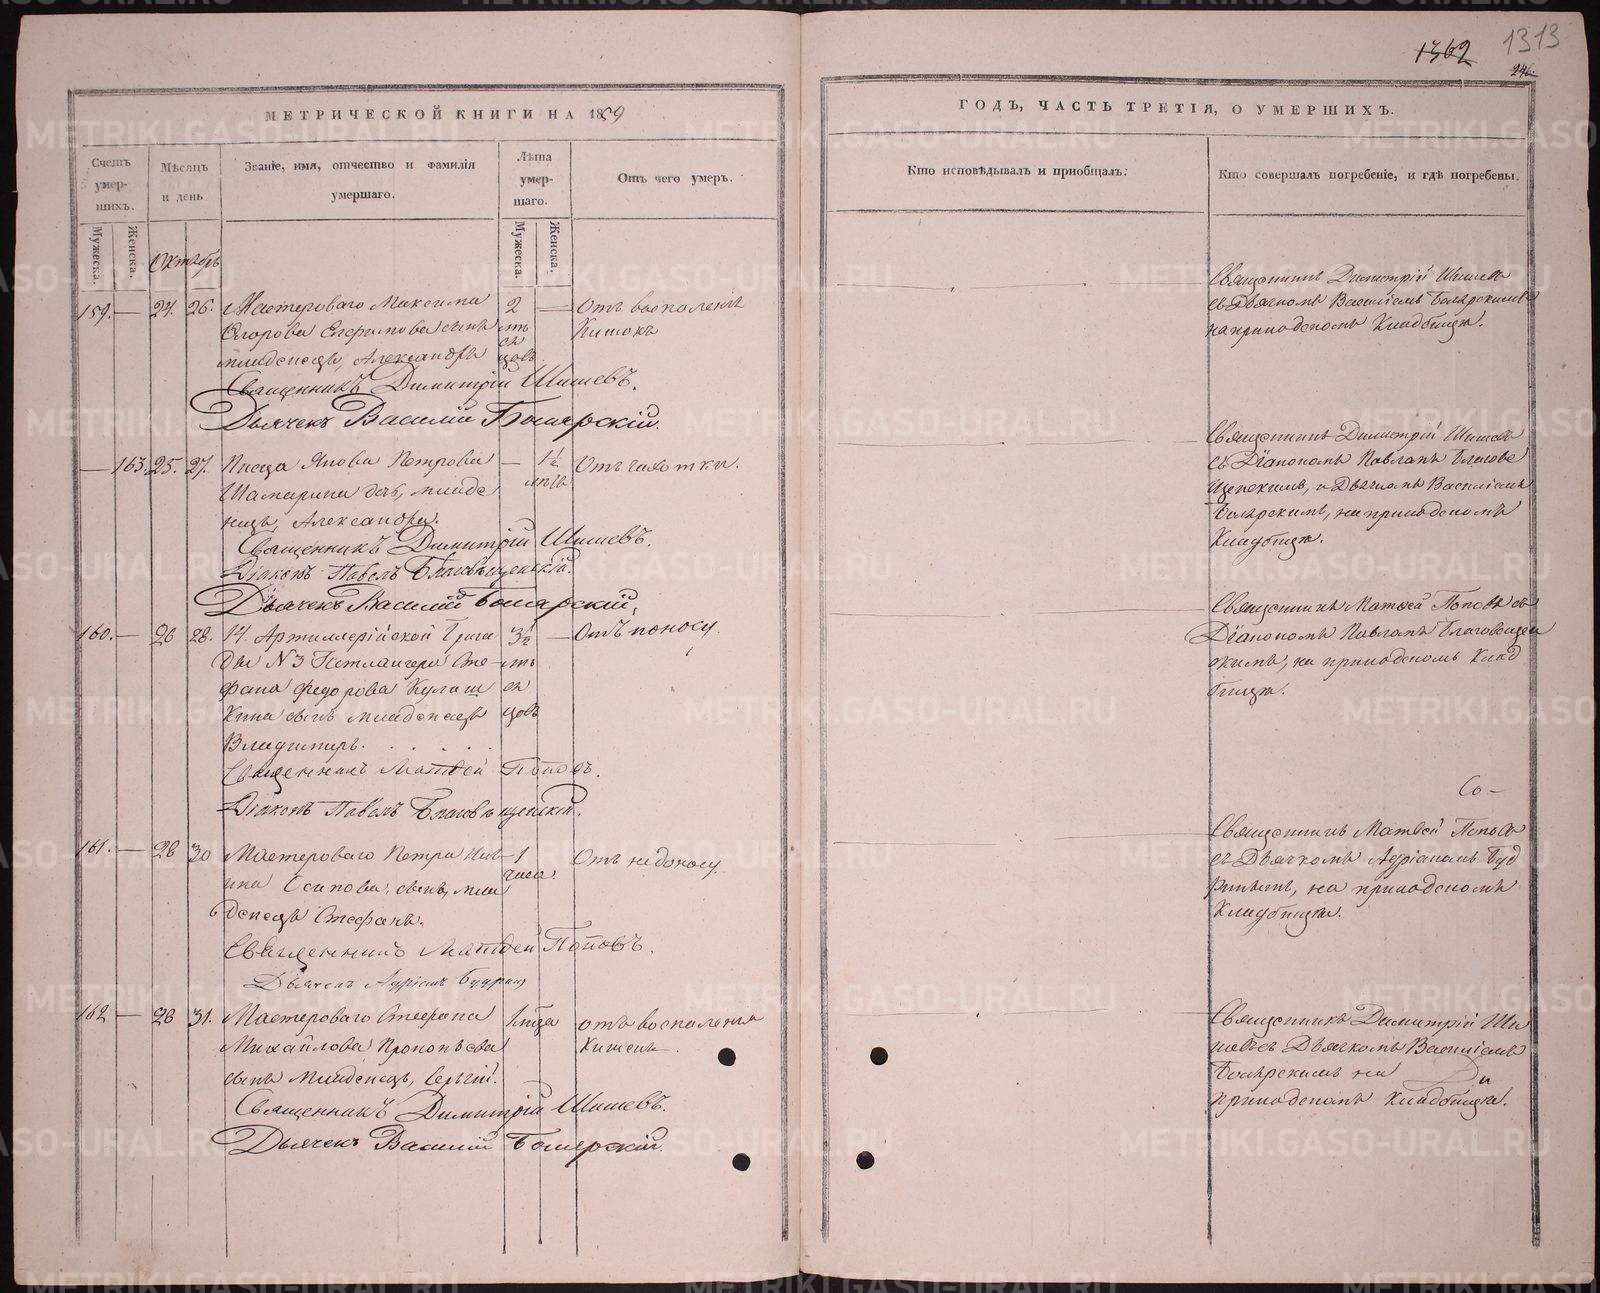 1362 1313
246.
МЕТРИЧЕСКОЙ КНИГИ НА 1859
Счетъ умер-шихъ.
Мужеска. Женска.
Мѣсяцъ и день
Званіе, имя, отчество и фамилія умершаго.
Лѣта умер-шаго.
Мужеска. Женска.
Отъ чего умеръ.
Октябрь
159. — 24. 26. Мастероваго Максима 2 — Отъ воспаленія
Егорова Ефимова сынъ мѣ Кишокъ
младенецъ, Александръ цовъ
Священникъ Димитрій Шишевъ.
Дьячекъ Василій Боярскій.
— 163. 25. 27. Писца Якова Петрова — 1½ Отъ чахотки.
Шамарина дочь, младе лѣтъ
нецъ, Александра.
Священникъ Димитрій Шишевъ.
Діаконъ Павелъ Благовѣщенскій.
Дьячекъ Василій Боярскій,
160. — 26 28. 14. Артиллерійской Брига 3½ — Отъ поносу.
ды № 3 Гатлангера Сте мѣ
фана Федорова Кулаш ся
кина сынъ младенецъ цовъ
Владимиръ. . . . . .
Священникъ Матвей Поповъ.
Діаконъ Павелъ Благовѣщенскій.
161. — 28 30 Мастероваго Петра 1 Отъ недоносу.
Осипова, сынъ, мла часа.
денецъ Стефанъ.
Священникъ Матвей Поповъ.
Дьячекъ Адріанъ Будринъ
162 — 28 31. Мастероваго Стефана 1 года отъ воспаленія
Михайлова Прокопьева Кишекъ.
сынъ младенецъ, Сергій.
Священникъ Димитрій Шишевъ.
Дьячекъ Василій Боярскій.
ГОДЪ, ЧАСТЬ ТРЕТІЯ, О УМЕРШИХЪ.
Кто исповѣдывалъ и пріобщалъ.
Кто совершалъ погребеніе, и гдѣ погребены.
Священникъ Димитрій Шишевъ
съ Дьячкомъ Василіемъ Боярскимъ
на приходскомъ Кладбищѣ.
Священникъ Димитрій Шишевъ
съ Діакономъ Павломъ Благове
щенскимъ, и Дьячкомъ Василіемъ
Боярскимъ, на приходскомъ
Кладбищѣ.
Священникъ Матвей Поповъ съ
Діакономъ Павломъ Благовещен
скимъ, на приходскомъ Клад
бищѣ.
Со-
Священникъ Матвей Поповъ
съ Дьячкомъ Адріаномъ Буд
ринымъ, на приходскомъ
Кладбищѣ.
Священникъ Димитрій Ши
шевъ съ Дьячкомъ Василіемъ
Боярскимъ на
приходскомъ Кладбищѣ.
METRIKI.GASO-URAL.RU